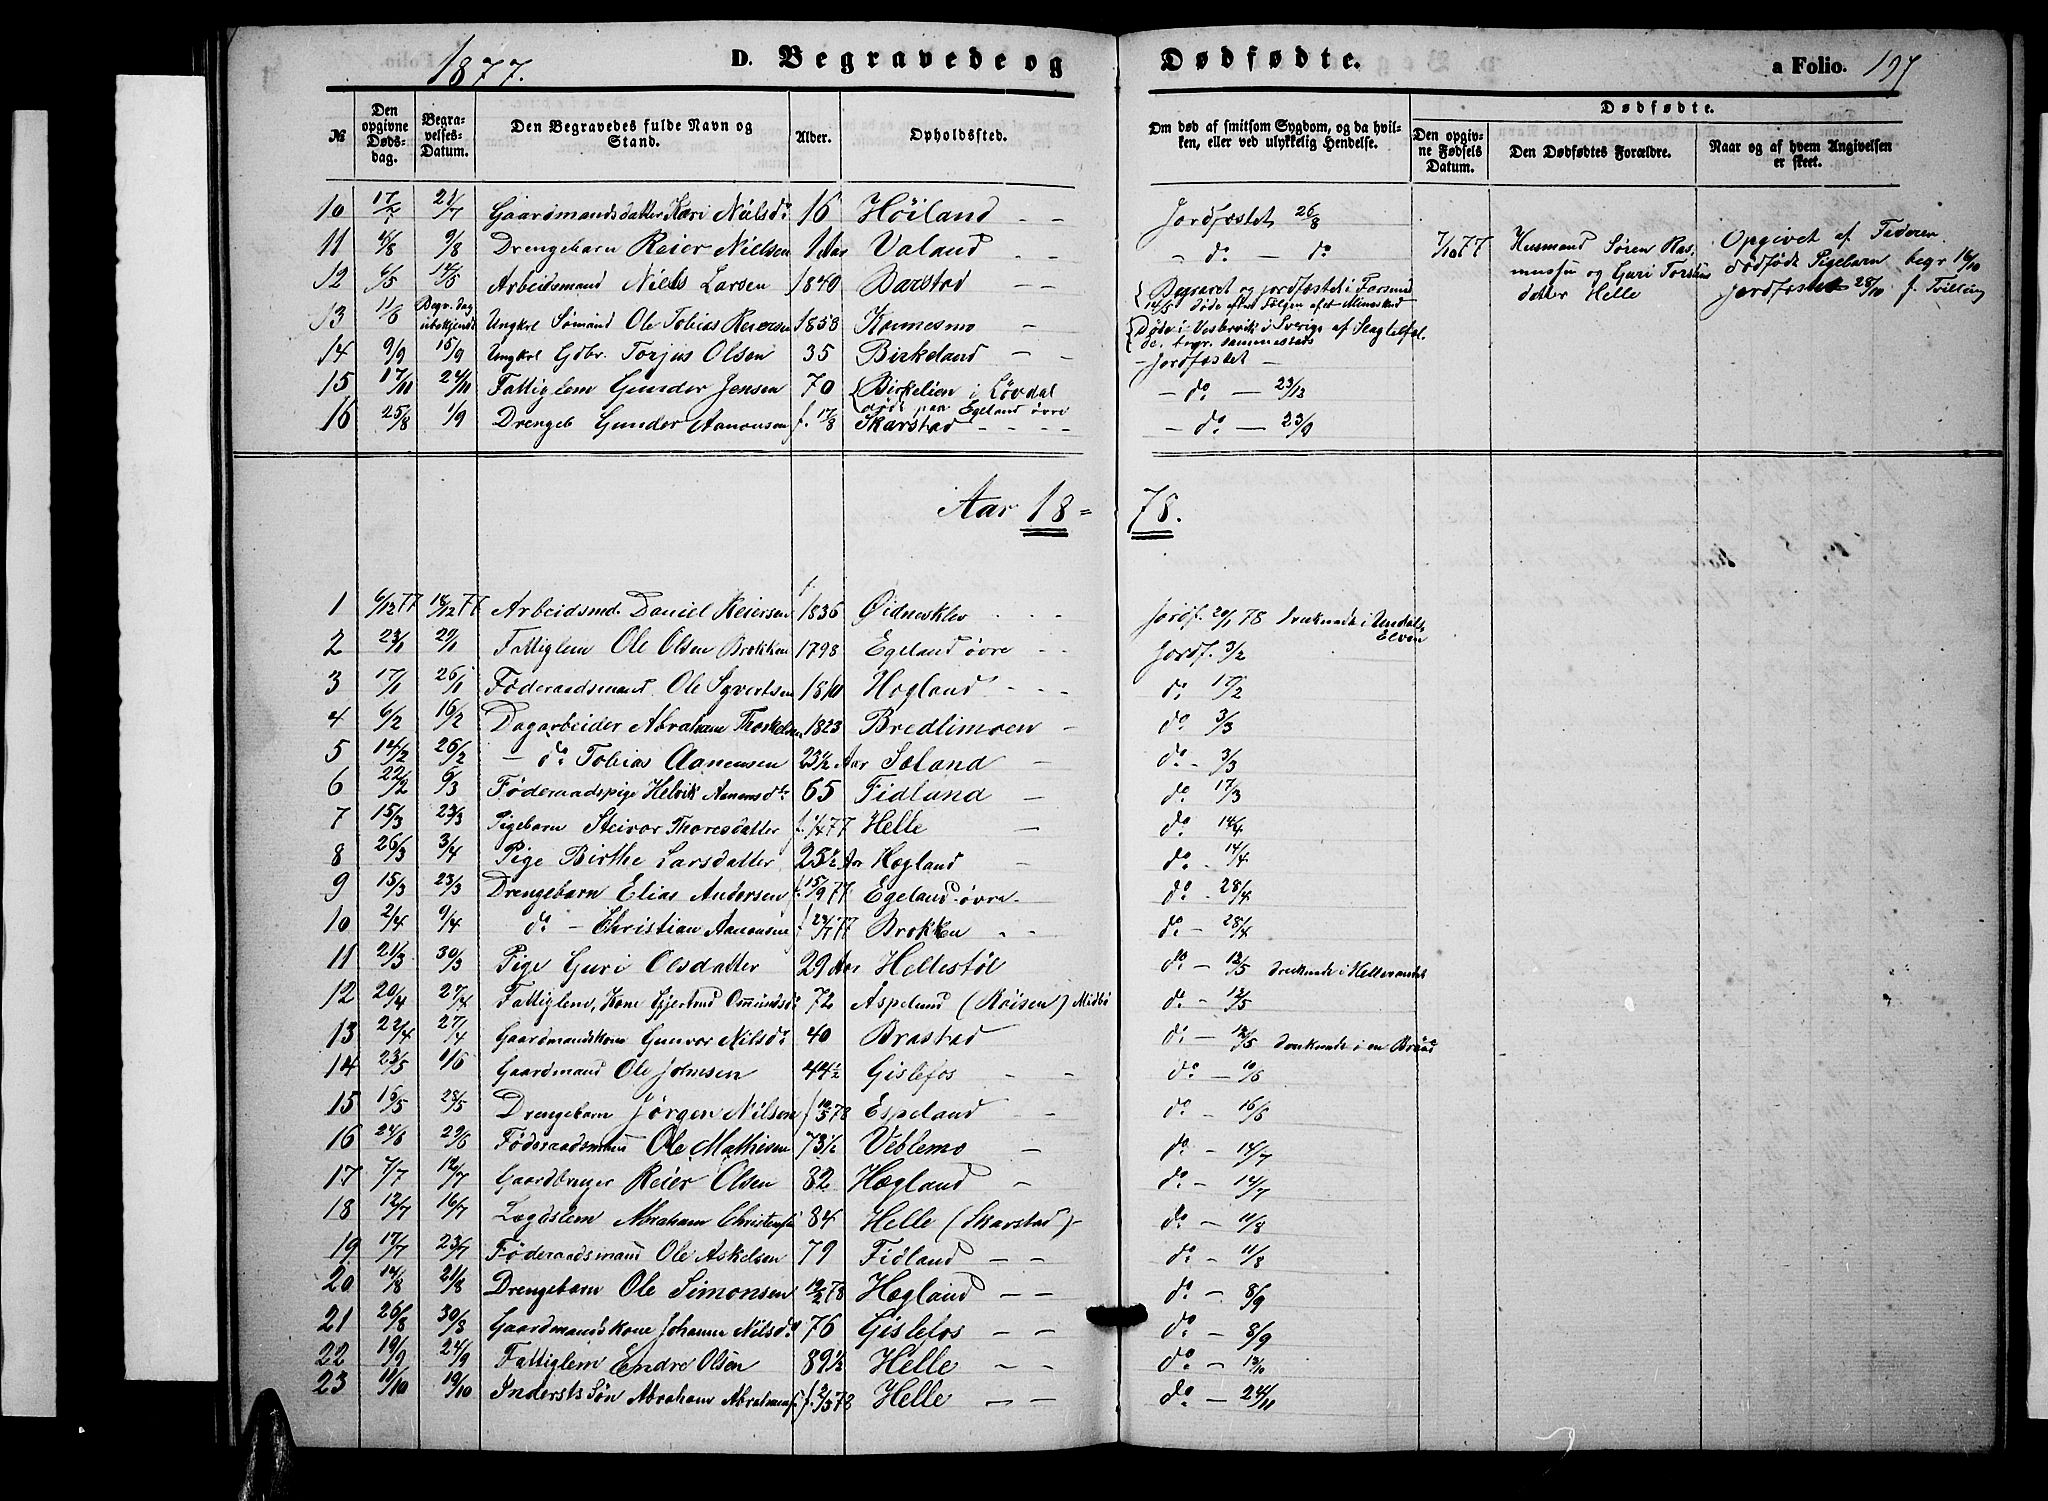 1877. D. Begravede og Dødfødte. a Folio. 197
№ Den opgivne Dødsdag. Begravelses-Datum. Den Begravedes fulde Navn og Stand. Alder. Opholdssted. Om død af smitsom Sygdom, og da hvilken, eller ved ulykkelig Hendelse. Dødfødte. Den opgivne Fødsels Datum. Den Dødfødtes Forældre. Naar og af hvem Angivelsen er skeet.
10 17/7 21/7 Gaardmandsdatter Kari Nielsdr 16 Høiland - - Jordfæstet 26/8
11 4/8 9/8 Drengebarn Reier Nielsen 1 Aar Valand - - - do - do
7/10 77 Husmand Søren Rasmussen og Guri Torstensdatter Helle Opgivet af Faderen. Dødfødt Pigebarn begr 16/10 Jordfæstet 28/10 f. Tvilling
12 6/5 14/5 Arbeidsmand Niels Larsen 1840 Barstad - - Begravet og jordfæstet i Farsund 14/5
13 11/6 Begr. dag ubekjendt Ungkrl Sømand Ole Tobias Reiersen 1858 Kornesmo - Døde i Vesbervik i Sverige af Slagtilfælde, begr. sammesteds
14 9/9 15/9 Ungkrl Gdbr. Torjus Olsen 35 Birkeland - - - Jordfæstet -
15 17/11 24/11 Fattiglem Gunder Jensen 70 Birkelien i Løvdal døde paa Egeland øvre - do - 23/12
16 25/8 1/9 Drengeb Gunder Aanonsen f. 17/8 Skarstad - - - - - do - 23/9
Aar 18=78.
1 6/12 77 18/12 77 Arbeidsmd. Daniel Reiersen f. 1836 Øidnesklev - - - Jordf. 20/1 78 druknede i Undals Elven
2 23/1 29/1 Fattiglem Ole Olsen Brokken 1798 Egeland øvre - - Jordf. 3/2
3 17/1 26/1 Føderaadsmand Ole Syvertsen 1810 Høgland - - - do 17/2
4 6/2 16/2 Dagarbeider Abraham Thorkelsen 1823 Bredlimoen - do 3/3
5 14/2 26/2 - do Tobias Aanensen 23 1/2 Aar Søland - do - 3/3
6 22/2 6/3 Føderaadspige Helvik Aanensdtr 65 Fidland - do 17/3
7 15/3 23/3 Pigebarn Steivor Thoresdatter f. 1/4 77 Helle - do 14/4
8 26/3 3/4 Pige Birthe Larsdatter 25 1/2 Aar Høgland - do - 14/4
9 15/3 23/3 Drengebarn Elias Andersen f. 15/9 77 Egeland øvre - do - 28/4
10 2/4 9/4 do - Christian Aanonsen f 29/7 77 Brokken - - do - 28/4
11 21/3 30/3 Pige Guri Olsdatter 29 Aar Hellestøl do - 12/5 druknede i Hellevandet
12 20/4 27/4 Fattiglem, Kone Gjertrud Osmundsdr 72 Aspelund (Roisen) Midbø do - 12/5
13 22/4 27/4 Gaardmandskone Gunvor Nilsdr 40 Brastad do - 12/5 druknede i en Brønd
14 23/5 1/6 Gaardmand Ole Johnsen 44 1/2 Gislefos - - do - 10/6
15 16/5 28/5 Drengebarn Jørgen Nilsen f 10/5 78 Espeland - - do - 16/6
16 24/6 29/6 Føderaadsmand Ole Mathisen 73 1/2 Veblemo - do - 14/7
17 7/7 12/7 Gaardbruger Reier Olsen 82 Høgland - do - 14/7
18 12/7 16/7 Lægdslem Abraham Christensen 84 Helle (Skarstad) - do - 11/8
19 17/7 23/7 Føderaadsmand Ole Askelsen 79 Fidland - - do - 11/8
20 14/8 21/8 Drengebarn Ole Simonsen 19/2 78 Høgland - - do - 8/9
21 26/8 30/8 Gaardmandskone Johanne Nilsdr 76 Gislefos - - do - 8/9
22 19/9 24/9 Fattiglem Endre Olsen 89 1/2 Helle - - do - 13/10
23 11/10 19/10 Inderstssøn Abraham Abrahamsen f. 2/5 78 Helle - - do - 24/11